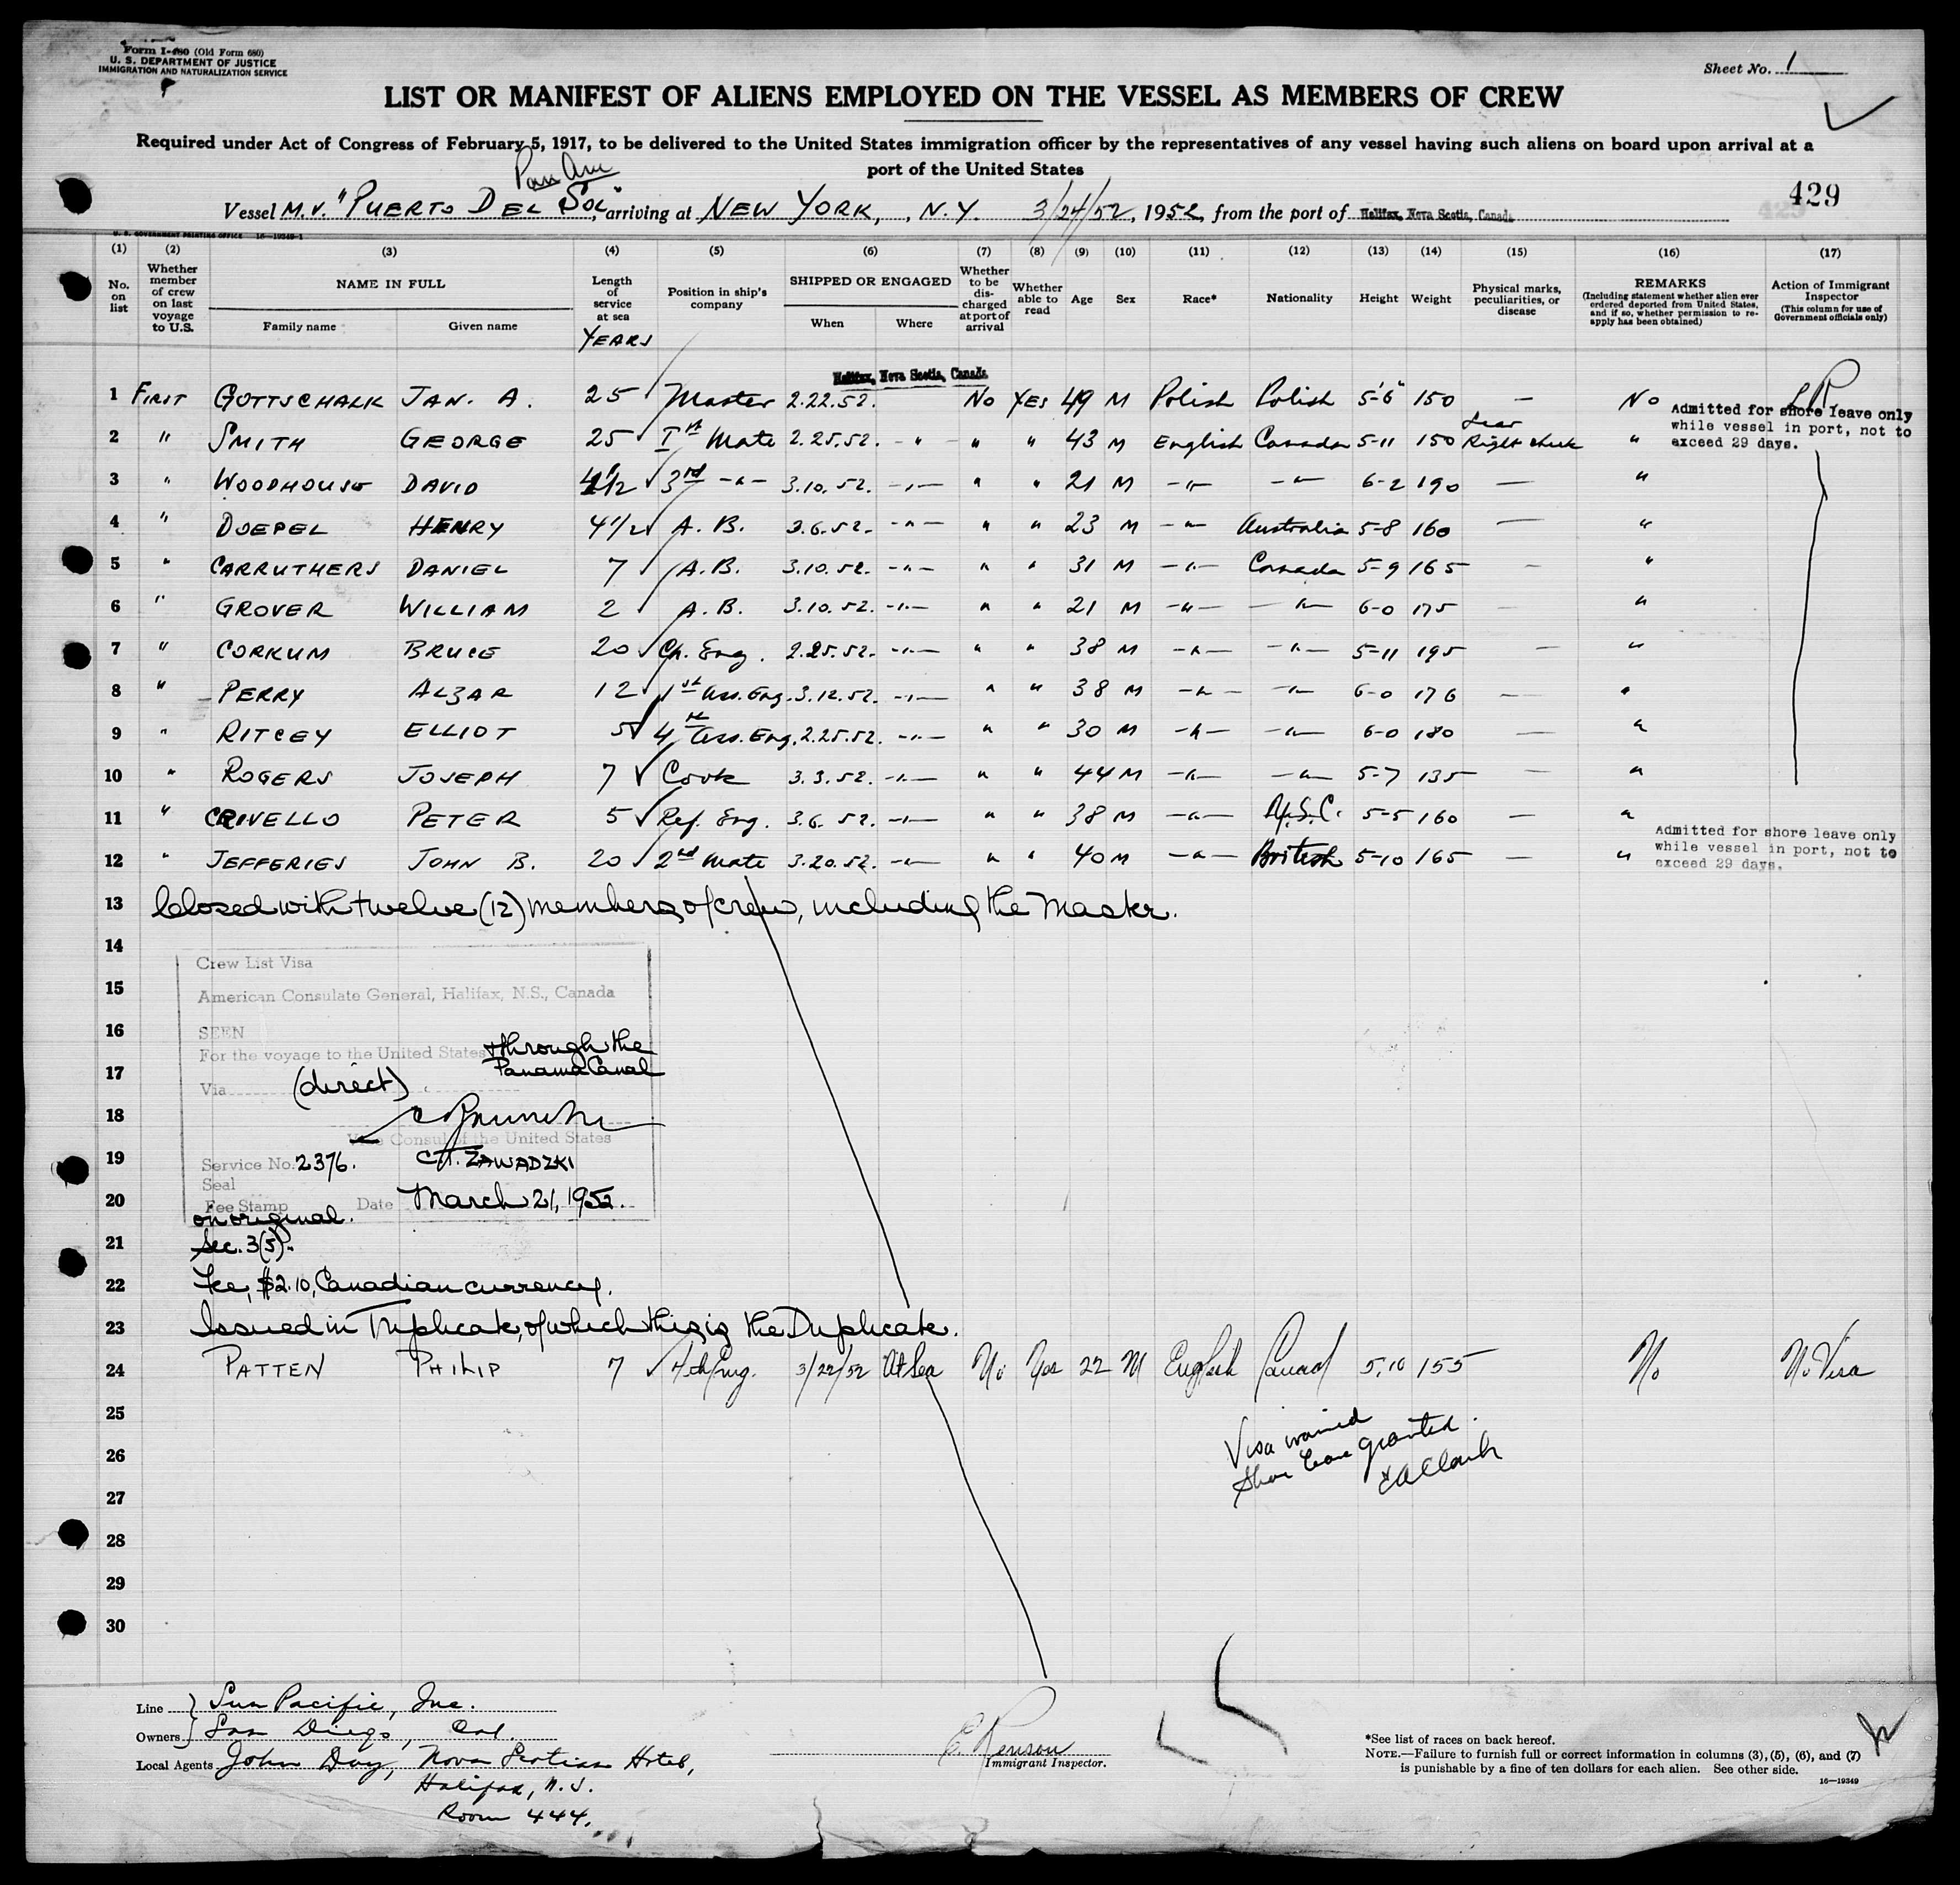 Form I-480 (Old Form 680)
U. S. DEPARTMENT OF JUSTICE
IMMIGRATION AND NATURALIZATION SERVICE
Sheet No. 1
LIST OR MANIFEST OF ALIENS EMPLOYED ON THE VESSEL AS MEMBERS OF CREW
Required under Act of Congress of February 5, 1917, to be delivered to the United States immigration officer by the representatives of any vessel having such aliens on board upon arrival at a
port of the United States
Pan Am
429
Vessel M.V. "PUERTO DEL SOL", arriving at NEW YORK, N.Y. 3/24/52, 1952, from the port of Halifax, Nova Scotia, Canada
U. S. GOVERNMENT PRINTING OFFICE 16-19349-1
(1) (2) (3) (4) (5) (6) (7) (8) (9) (10) (11) (12) (13) (14) (15) (16) (17)
No. on list
Whether member of crew on last voyage to U.S.
NAME IN FULL
Family name
Given name
Length of service at sea
YEARS
Position in ship's company
SHIPPED OR ENGAGED
When
Where
Whether to be discharged at port of arrival
Whether able to read
Age
Sex
Race*
Nationality
Height
Weight
Physical marks, peculiarities, or disease
REMARKS
(Including statement whether alien ever ordered deported from United States, and if so, whether permission to reapply has been obtained)
Action of Immigrant Inspector
(This column for use of Government officials only)
Halifax, Nova Scotia, Canada
1 FIRST GOTTSCHALK JAN. A. 25 Master 2.22.52. NO YES 49 M Polish Polish 5-6" 150 — No
Admitted for shore leave only
while vessel in port, not to
exceed 29 days.
2 " SMITH GEORGE 25 Ist Mate 2.25.52. - " - " " 43 M English Canada 5-11 150 Scar Right cheek "
3 " WOODHOUSE DAVID 4 1/2 3rd -"- 3.10.52. -"- " " 21 M -"- -"- 6-2 190 — "
4 " DOEPEL HENRY 4 1/2 A. B. 3.6.52. -"- " " 23 M -"- Australia 5-8 160 — "
5 " CARRUTHERS DANIEL 7 A.B. 3.10.52. -"- " " 31 M -"- Canada 5-9 165 — "
6 " GROVER WILLIAM 2 A.B. 3.10.52. -"- " " 21 M -"- -"- 6-0 175 — "
7 " CORKUM BRUCE 20 Ch. Eng. 2.25.52. -"- " " 38 M -"- -"- 5-11 195 — "
8 " PERRY ALZAR 12 1st Ass. Eng. 3.12.52. -"- " " 38 M -"- -"- 6-0 176 — "
9 " RITCEY ELLIOT 5 4th Ass. Eng. 2.25.52. -"- " " 30 M -"- -"- 6-0 180 — "
10 " ROGERS JOSEPH 7 Cook 3.3.52. -"- " " 44 M -"- -"- 5-7 135 — "
11 " CRIVELLO PETER 5 Ref. Eng. 3.6.52. -"- " " 38 M -"- U.S.C. 5-5 160 — "
12 " JEFFERIES JOHN B. 20 2nd Mate 3.20.52. -"- " " 40 M -"- British 5-10 165 — "
Admitted for shore leave only
while vessel in port, not to
exceed 29 days.
13 Closed with twelve (12) members of crew, including the Master.
14
Crew List Visa
15
American Consulate General, Halifax, N.S., Canada
16
SEEN
For the voyage to the United States through the
Panama Canal
17
Via (direct)
18
Vice Consul of the United States
19
Service No. 2376. C.T. ZAWADZKI
Seal
20
Fee Stamp Date March 21, 1952.
on original.
21 Sec. 3(5).
22 Fee, $2.10, Canadian currency.
23 Issued in Triplicate, of which this is the Duplicate.
24 PATTEN PHILIP 7 4th Eng. 3/22/52 At Sea No Yes 22 M English Canad 5.10 155 No No Visa
25
Visa waived
26
Shore leave granted.
27
28
29
30
Line Sun Pacific, Inc.
Owners San Diego, Cal.
Local Agents John Day, Nova Scotian Hotel,
Halifax, N.S.
Room 444.
E. Renson
Immigrant Inspector.
*See list of races on back hereof.
NOTE.—Failure to furnish full or correct information in columns (3), (5), (6), and (7)
is punishable by a fine of ten dollars for each alien. See other side.
16—19349